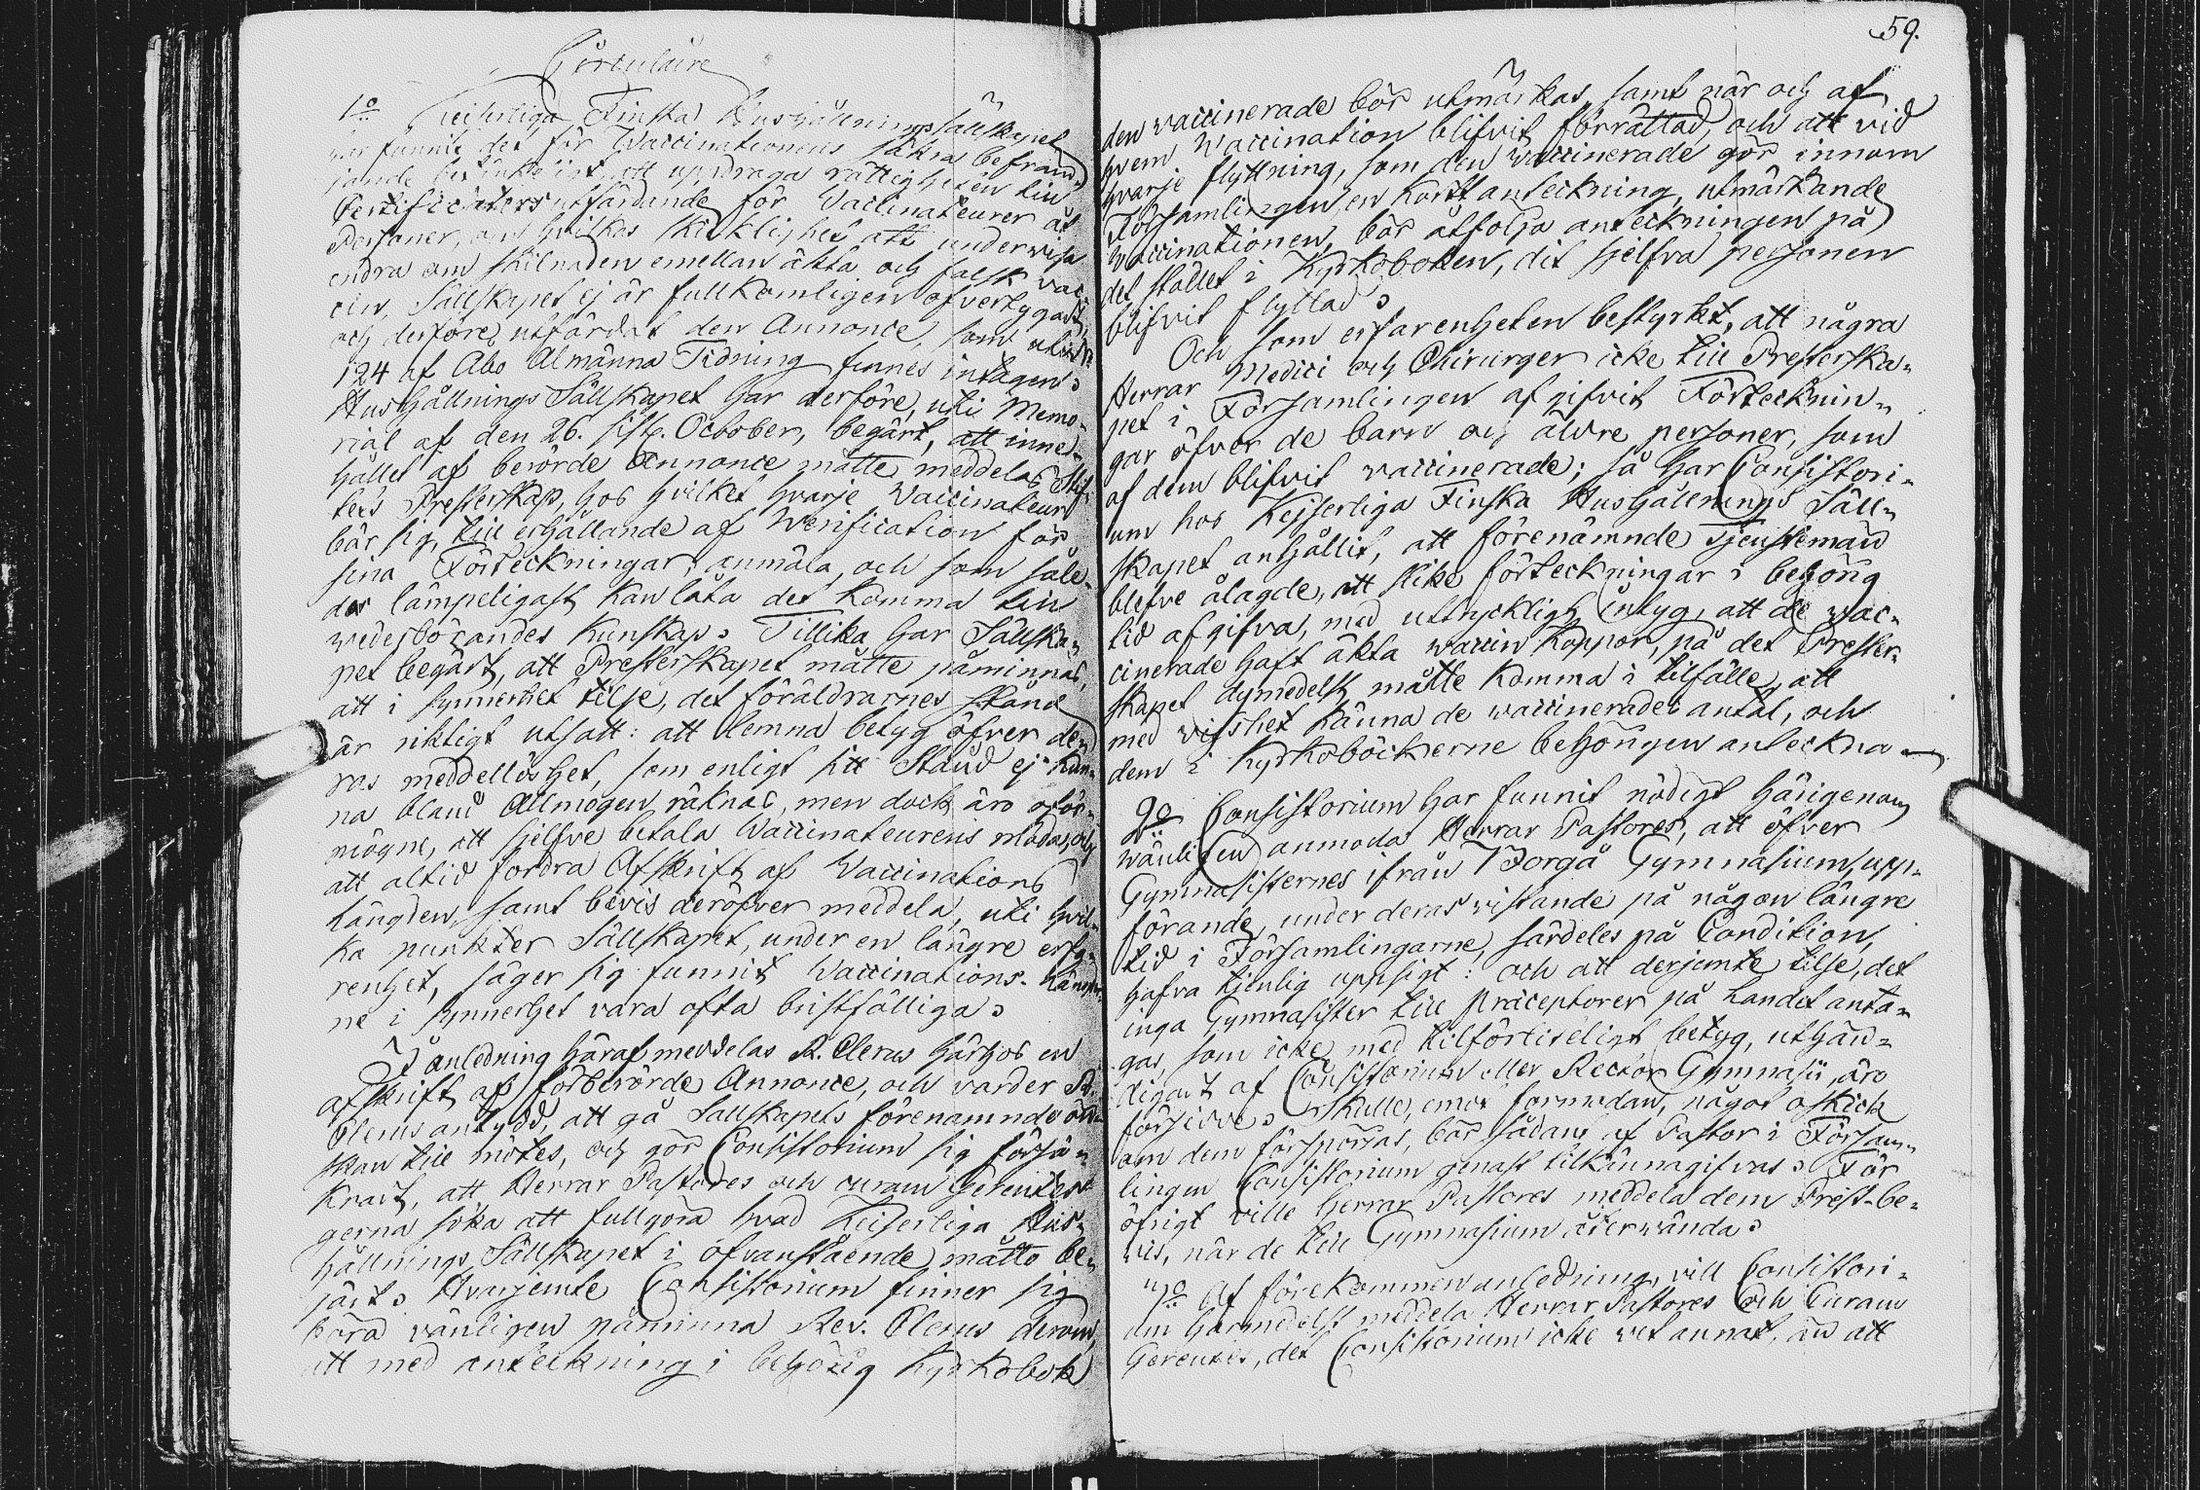 Circulaire
1o Keiserliga Finska Hushållningssällskapet
har funnit det för Vaccinationens säkra befräm-
jande betänkligt, att updraga rättigheten till
Certificaters utfärdande för Vaccinateurer åt
Personer, om hvilkas skicklighet att underwisa
andra om skilnaden emellan äkta och falsk vac-
cin, Sällskapet ej är fullkomligen öfvertygadt,
och derföre utfärdat den Annonce, som uti No
124 af Åbo Almänna Tidning finnes intagen.
Hushållnings Sällskapet har derföre, uti Memo-
rial af den 26. sistl. October, begärt, att inne-
hållet af berörde Annonce måtte meddelas Stif-
tets Presterskap, hos hvilket hvarje Vaccinateur
bör sig, till erhållande af Verification för
sina Förteckningar, anmäla, och som såle-
des lämpeligast kan låta det komma till
wederbörandes kunskap. Tillika har Sällska-
pet begärt, att Presterskapet måtte påminnas,
att i synnerhet tilse, det föräldrarnes stånd
är riktigt utsatt: att lemna betyg öfver de-
ras meddellöshet, som enligt sitt Stånd ej kun-
na bland Allmogen räknas, men dock äro oför-
mögne, att sjelfve betala Vaccinateurens möda, och
att altid fordra Afskrift af Vaccinations
Längden, samt bevis deröfver meddela, uti hvil-
ka punkter Sällskapet, under en längre erfa-
renhet, säger sig funnit Vaccinations-Längder-
ne i synnerhet vara ofta bristfälliga.
I anledning häraf meddelas R. Clerus härhos en
afskrift af förberörde Annonce, och varder R.
Clerus antydd, att gå Sällskapets förenämnde ön-
skan till mötes, och gör Consistorium sig försä-
krart, att Herrar Pastores och curam Gerentes
gerna söka att fullgöra hvad Keiserliga Hus-
hållnings Sällskapet i ofvanstående måtto be-
gärt. Hvarjemte Consistorium finner sig
böra vänligen påminna Rev. Clerus derom,
att med anteckning i behörig Kyrkobok
59.
den vaccinerade bör utmärkas, samt när och af
hvem Vaccination blifvit förrättad, och att vid
hvarje flyttning, som den vaccinerade gör innom
Församlingen, en kort anteckning, utmärkande
Vaccinationen, bör åtfölja anteckningen på
det stället i Kyrkoboken, dit sjelfva personen
blifvit flyttad.
Och som erfarenheten bestyrkt, att några
Herrar Medici och Chirurger icke till Presterska-
pet i Församlingen afgifvit Förtecknin-
gar öfver de barn och äldre personer, som
af dem blifvit vaccinerade; så har Consistori-
um hos Kejserliga Finska Hushållnings Säll-
skapet anhållit, att förenämnde Tjensteman
blefve ålagde, att slike förteckningar i behörig
tid afgifva, med uttryckligt intyg, att de vac-
cinerade haft äkta vaccin koppor, på det Prester-
skapet dymedelst måtte komma i tilfälle, att
med visshet känna de vaccinerades antal, och
dem i Kyrkoböckerne behörigen anteckna.
2o Consistorium har funnit nödigt härigenom
wänligen anmoda Herrar Pastores, att öfver
Gymnasisternes ifrån Borgå Gymnasium upp-
förande, under deras vistande på någon längre
tid i Församlingarne, särdeles på Condition,
hafva tjenlig uppsigt: och att derjemte tilse, det
inga Gymnasister till Præceptorer på Landet anta-
gas, som icke med tilförliteligt betyg, uthän-
digart af Consistorium eller Rector Gymnasii, äro
försedde. Skulle, emot förmodan, något oskick
om dem förspörjas, bör sådant af Pastor i Försam-
lingen Consistorium genast tilkännagifvas. För
öfrigt ville Herrar Pastores meddela dem Prest-be-
vis, när de till Gymnasium återwända.
3o Af förekommen anledning, vill Consistori-
um härmedelst meddela Herrar Pastores och Curam
Gerentes, det Consistorium icke vet annat, än att